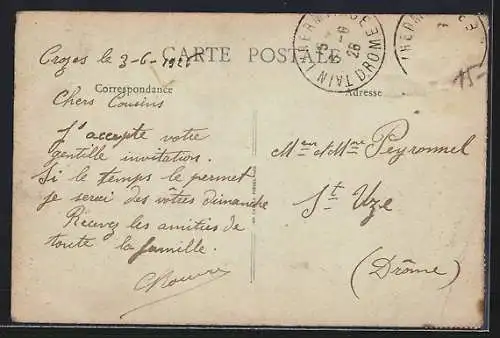 Crozes le 3-6-1926
CARTE POSTALE
TAIN L'HERMITAGE DRÔME
15
3-6
26
15-
Correspondance
Adresse
Chers Cousins
J'accepte votre
gentille invitation.
Si le temps le permet
je serai des vôtres dimanche
Recevez les amitiés de
toute la famille.
Meur et Mme Peyronnel
St Uze
(Drôme)